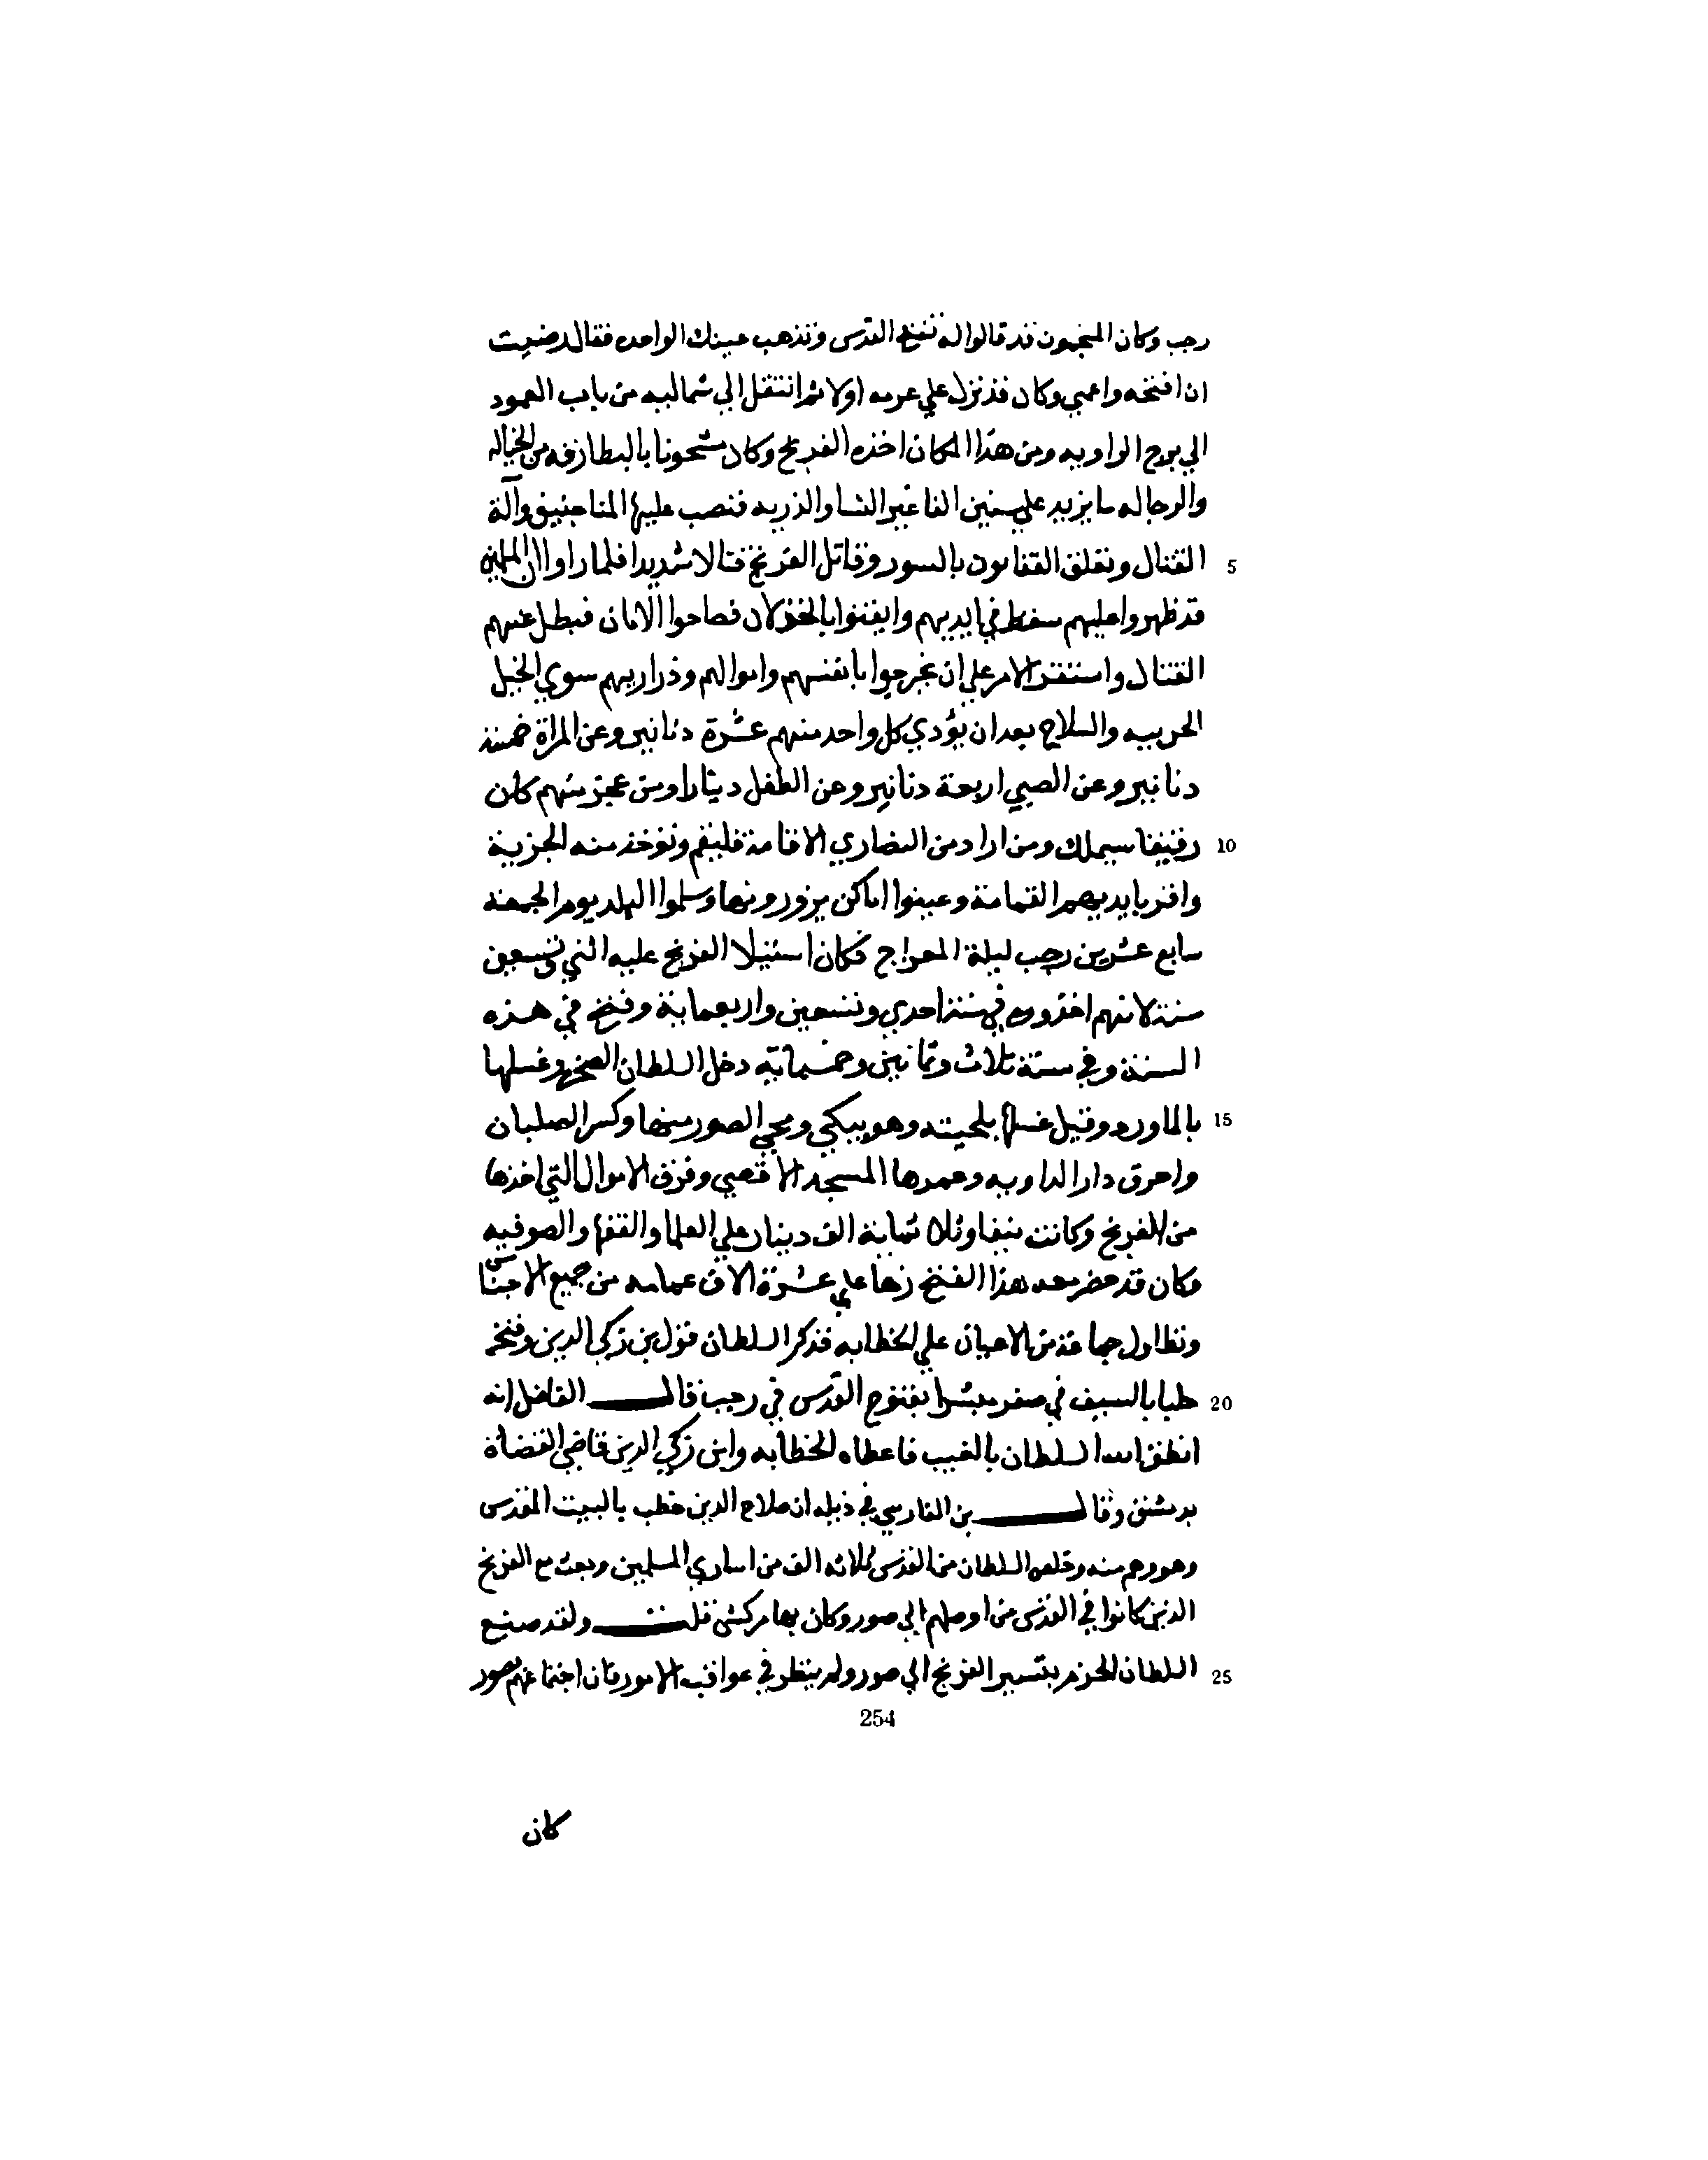 رجب وكان المنجمون قد قالوا له تفتح القدس وتذهب عينك الواحده فقال رضيت
ان افتحه واعمي وكان قد نزل علي غربيه اولا ثم انتقل الي شماليه من باب العمود
الي برج الزاويه ومن هذا المكان اخذه الفرنج وكان مشحونا بالبطارقه من الخياله
والرجاله ما يزيد علي ستين الفا غير النسا والذريه فنصب عليها المناجنيق وآلة
5 القتال وتعلق النقابون بالسور وقاتل الفرنج قتالا شديدا فلما راوا ان المسلمين
قد ظهروا عليهم سقط في ايديهم وايقنوا بالخذلان فصاحوا الامان فبطل عنهم
القتال واستقر الامر علي ان يخرجوا بانفسهم واموالهم وذراريهم سوي الخيل
الحربيه والسلاح بعد ان يؤدي كل واحد منهم عشرة دنانير وعن المراة خمسة
دنانير وعن الصبي اربعة دنانير وعن الطفل دينارا ومن عجز منهم كان
10 رقيقا سيملك ومن اراد من النصاري الاقامة فليقم وتوخذ منه الجزية
واقر بايديهم القمامة وعينوا اماكن يزورونها وسلموا البلد يوم الجمعة
سابع عشرين رجب ليلة المعراج فكان استيلا الفرنج عليه اثني وتسعين
سنة لانهم اخذوه في سنة احدي وتسعين واربعماية وفتح في هذه
السنة وفي سنة ثلاث وثمانين وخمسمايه دخل السلطان الصخره وغسلها
15 بالماورد وقيل غسلها بلحيته وهو يبكي ومحي الصور منها وكسر الصلبان
واحرق دار الداويه وعمرها المسجد الاقصي وفرق الاموال التي اخذها
من الفرنج وكانت نيفا وثلاثماية الف دينار علي العلما والفقها والصوفيه
وكان قد حضر معه هذا الفتح زها علي عشرة الاف عمامه من جميع الاجناس
وتطاول جماعة من الاعيان علي الخطابه فذكر السلطان قول بن زكي الدين وفتح
20 حلبا بالسيف في صفر مبشرا بفتوح القدس في رجب قال الفاضل انه
انطق الله السلطان بالغيب فاعطاه الخطابه وابن زكي الدين قاضي القضاة
بدمشق وقال بن الفارسي في ذيله ان صلاح الدين خطب بالبيت المقدس
وهو وهم منه وخلص السلطان من القدس ثلاثه الف من اساري المسلمين وبعث مع الفرنج
الذين كانوا في القدس من اوصلهم الي صور وكان بها مركيش قلت ولقد صنع
25 السلطان الحزم بتسيير الفرنج الي صور ولم ينظر في عواقب الامور فان اجتماعهم بصور
254
كان